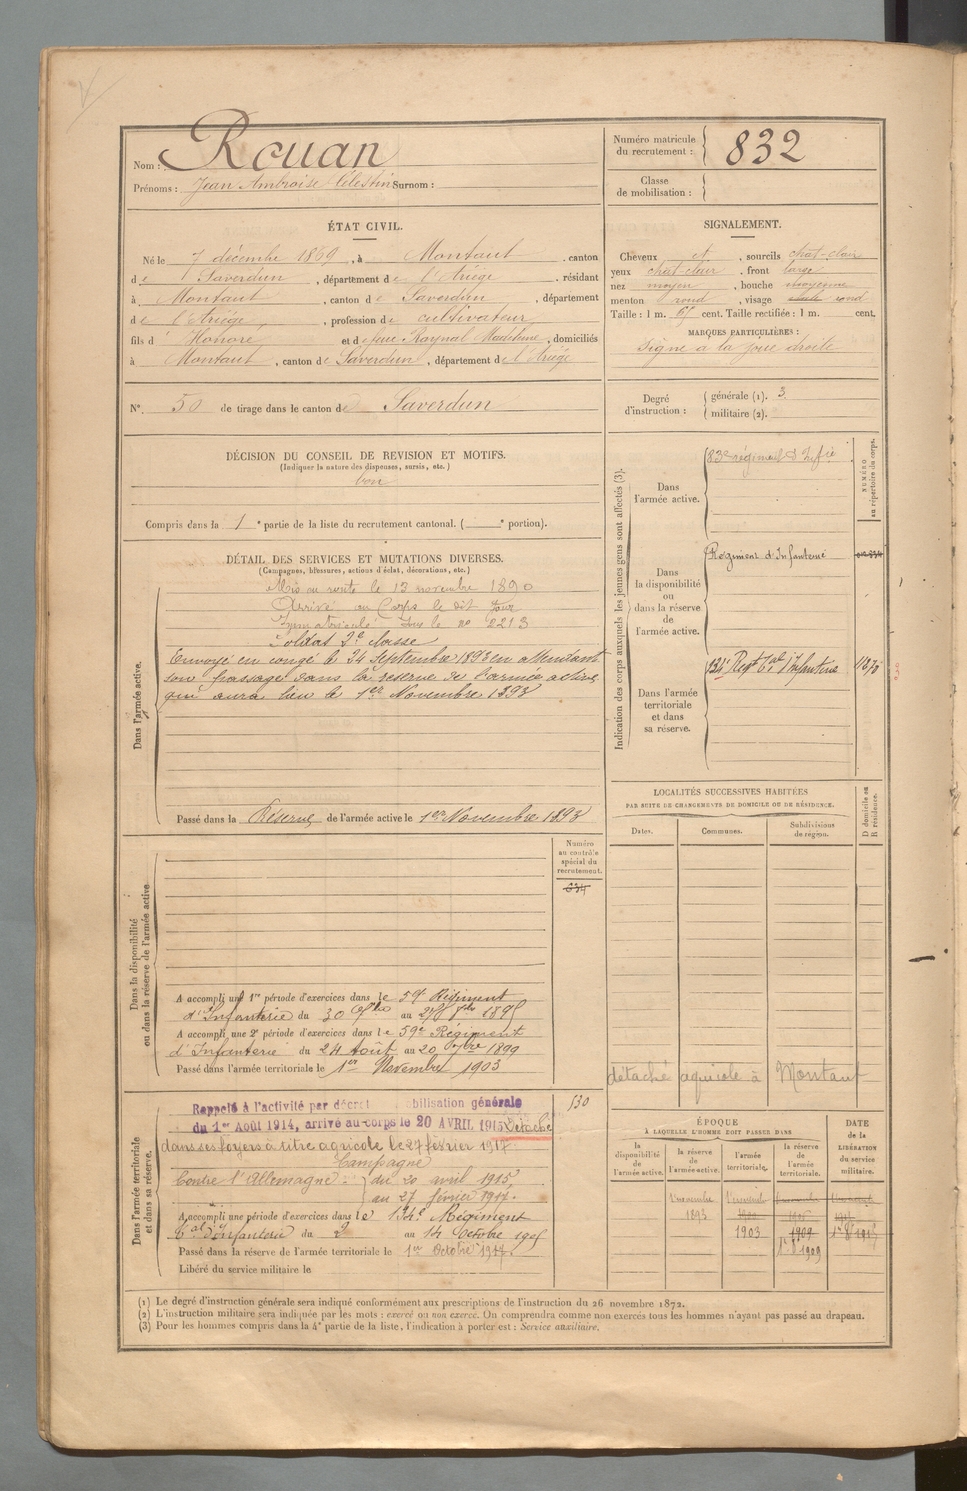 Nom : Rouan
Prénoms : Jean Ambroise Célestin Surnom :
Numéro matricule du recrutement : 832
Classe de mobilisation :
ÉTAT CIVIL.
Né le 7 décembre 1869, à Montaut, canton
de Saverdun, département de l'Ariège, résidant
à Montaut, canton de Saverdun, département
de l'Ariège, profession de cultivateur
fils d'Honoré et de feue Raynal Madeleine, domiciliés
à Montaut, canton de Saverdun, département de l'Ariège
SIGNALEMENT.
Cheveux et, sourcils chat-clair
yeux chat-clair, front large
nez moyen, bouche moyenne
menton rond, visage rond
Taille : 1 m. 67 cent. Taille rectifiée : 1 m. cent.
MARQUES PARTICULIÈRES :
Signe à la joue droite
N° 50 de tirage dans le canton de Saverdun
Degré d'instruction : générale (1). 3
militaire (2).
DÉCISION DU CONSEIL DE REVISION ET MOTIFS.
(Indiquer la nature des dispenses, sursis, etc.)
bon
Compris dans la 1e partie de la liste du recrutement cantonal. ( e portion).
DÉTAIL DES SERVICES ET MUTATIONS DIVERSES.
(Campagnes, blessures, actions d'éclat, décorations, etc.)
Dans l'armée active.
Mis en route le 13 novembre 1890
Arrivé au Corps le dit jour
Immatriculé sous le n° 2213
Soldat 2e classe
Envoyé en congé le 24 Septembre 1893 en attendant
son passage dans la réserve de l'armée active
qui aura lieu le 1er Novembre 1893
Passé dans la Réserve de l'armée active le 1er Novembre 1893
Indication des corps auxquels les jeunes gens sont affectés (3).
NUMÉRO au répertoire du corps.
Dans l'armée active.
83e régiment d'Infie
Dans la disponibilité ou dans la réserve de l'armée active.
Régiment d'Infanterie
Dans l'armée territoriale et dans sa réserve.
134e Regt Cal d'Infanterie
LOCALITÉS SUCCESSIVES HABITÉES
PAR SUITE DE CHANGEMENTS DE DOMICILE OU DE RÉSIDENCE.
Dates. Communes. Subdivisions de région. D domicile ou R résidence.
détaché agricole à Montaut
Dans la disponibilité ou dans la réserve de l'armée active
Numéro au contrôle spécial du recrutement.
634
A accompli une 1re période d'exercices dans le 59e Régiment
d'Infanterie du 30 au 1895
A accompli une 2e période d'exercices dans le 59e Régiment
d'Infanterie du 24 Août au 20 7bre 1899
Passé dans l'armée territoriale le 1er Novembre 1903
Dans l'armée territoriale et dans sa réserve.
530
Rappelé à l'activité par décret bilisation générale
du 1er Août 1914, arrivé au corps le 20 AVRIL 1915 Détaché
dans ses foyers à titre agricole le 27 février 1917
Campagne
Contre l'Allemagne : du 20 avril 1915,
au 27 février 1917.
A accompli une période d'exercices dans le 134e Régiment
Cal d'Infanterie du au 14 Octobre 1905
Passé dans la réserve de l'armée territoriale le 1er Octobre
Libéré du service militaire le
ÉPOQUE
A LAQUELLE L'HOMME DOIT PASSER DANS
la disponibilité de l'armée active. la réserve de l'armée active. l'armée territoriale. la réserve de l'armée territoriale.
DATE de la LIBÉRATION du service militaire.
1 novembre 1893
1903
1909
1909
(1) Le degré d'instruction générale sera indiqué conformément aux prescriptions de l'instruction du 26 novembre 1872.
(2) L'instruction militaire sera indiquée par les mots : exercé ou non exercé. On comprendra comme non exercés tous les hommes n'ayant pas passé au drapeau.
(3) Pour les hommes compris dans la 4e partie de la liste, l'indication à porter est : Service auxiliaire.